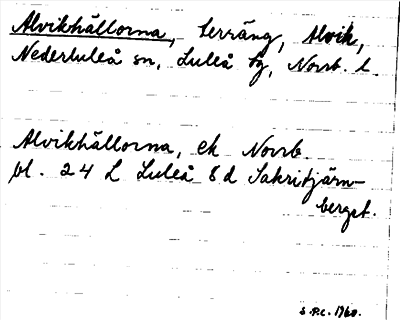 Alvikhällorna, terräng, Alvik,
Nederluleå sn, Luleå tg, Norrb. l.
Alvikhällorna, ek Norrb.
bl. 24 L Luleå Sd Sakritjärn-
berget.
S.P.C. 1960.